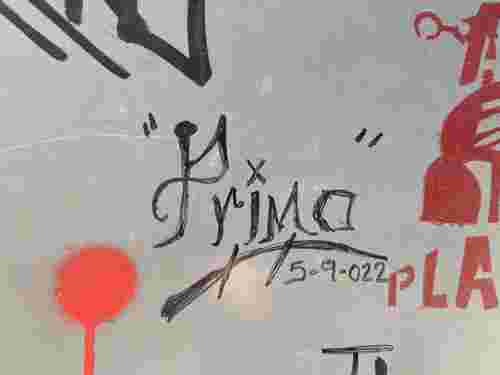 "Primo"
5-9-022
PLA